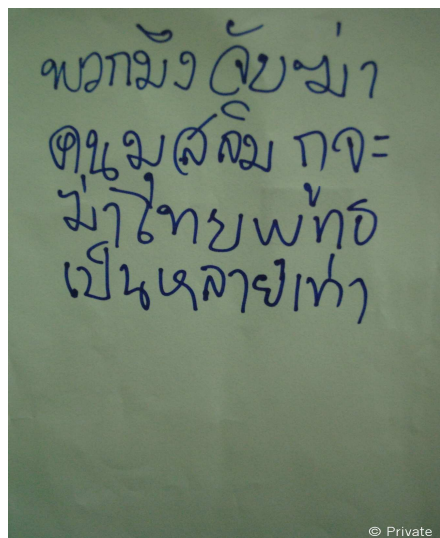 พวกมึงจับฆ่า
คนมุสลิม กูจะ
ฆ่าไทยพุทธ
เป็นหลายเท่า
© Private